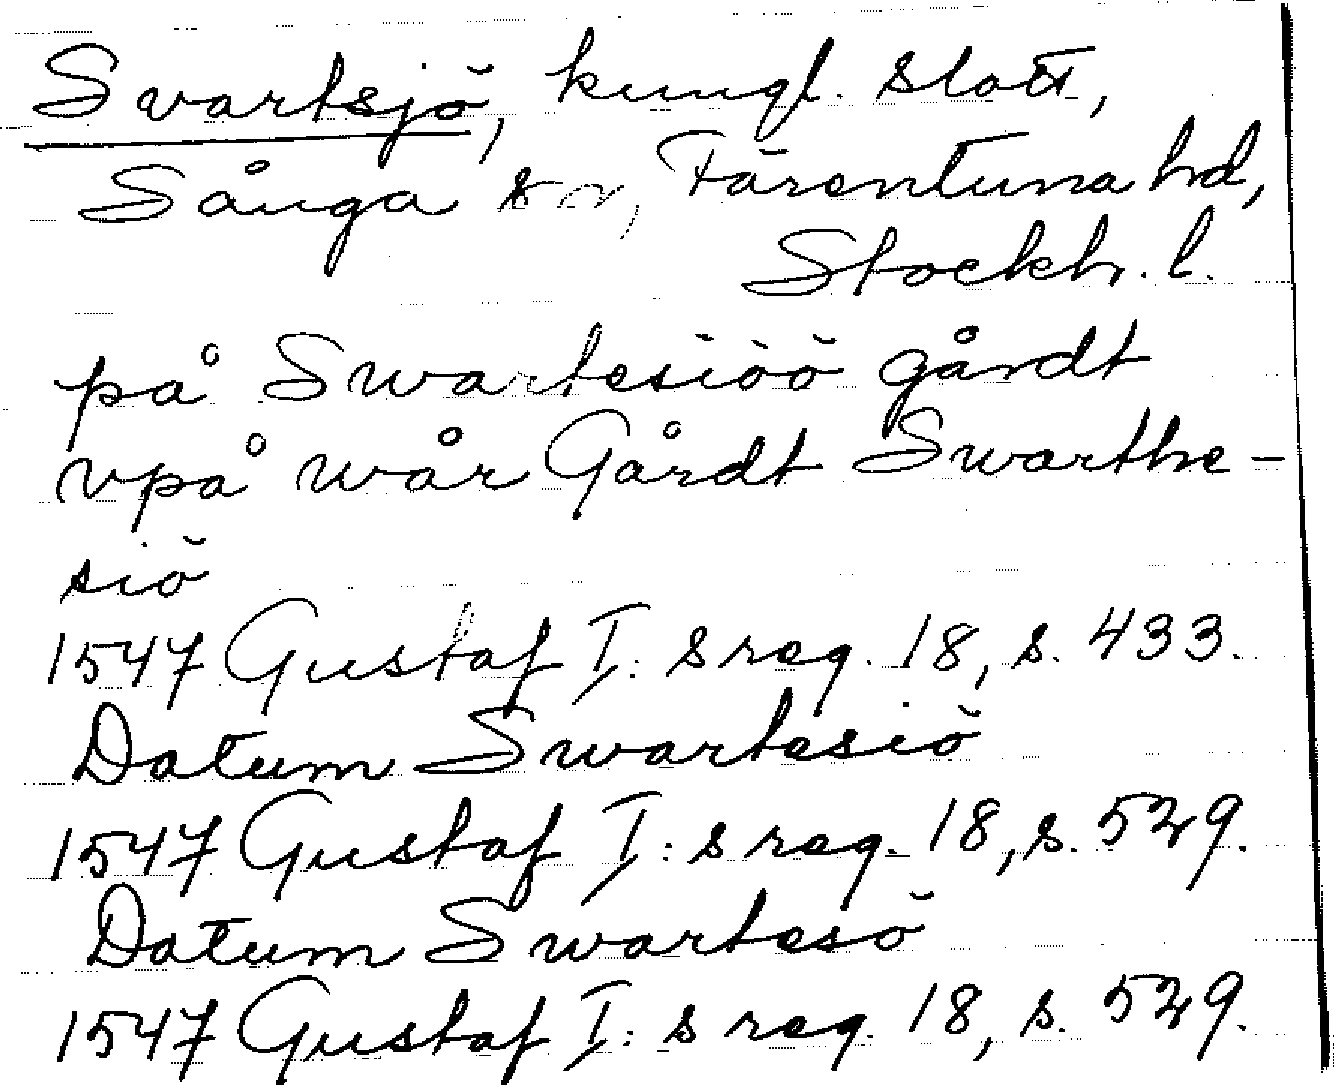 Svartsjö, kungl. slott,
Sånga sn, Färentuna hd,
Stockh. l.
på Swartesiöö gårdt
vpå wår Gårdt Swarthe-
siö
1547 Gustaf I:s reg. 18, s. 433.
Datum Swartesiö
1547 Gustaf I:s reg. 18, s. 529.
Datum Swartesö
1547 Gustaf I:s reg. 18, s. 529.